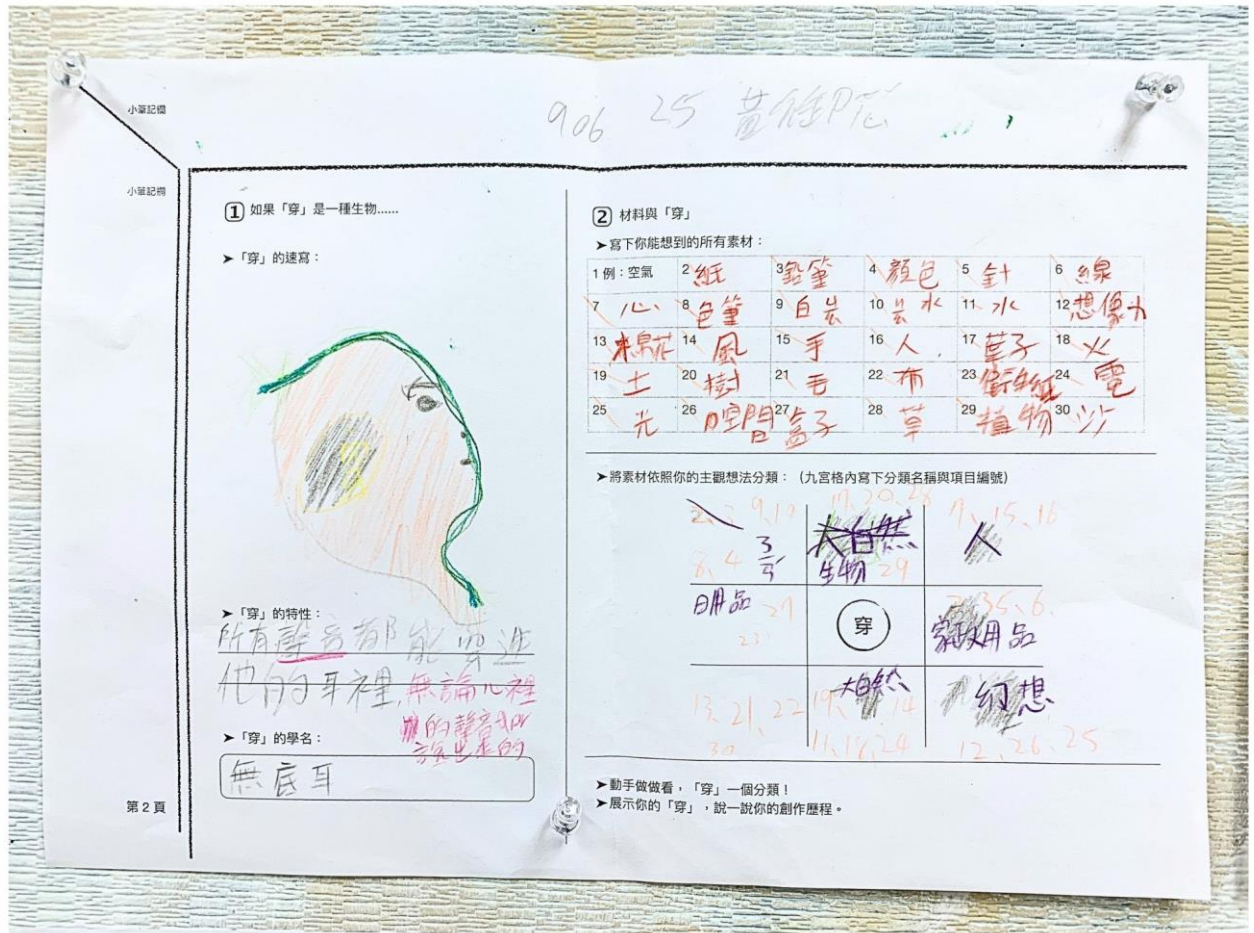 小筆記欄
906 25 黃
小筆記欄
1 如果「穿」是一種生物......
➤「穿」的速寫：
➤「穿」的特性：
所有聲音都能穿進
他的耳裡,無論心裡
的聲音或
說出來的
➤「穿」的學名：
無底耳
第 2 頁
2 材料與「穿」
➤寫下你能想到的所有素材：
1 例：空氣 2 紙 3 鉛筆 4 顏色 5 針 6 線
7 心 8 色筆 9 白炭 10 水 11 水 12 想像力
13 棉花 14 風 15 手 16 人 17 葉子 18 火
19 土 20 樹 21 毛 22 布 23 衛生紙 24 電
25 光 26 空間 27 盒子 28 草 29 植物 30 沙
➤將素材依照你的主觀想法分類：（九宮格內寫下分類名稱與項目編號）
9、10 17、20、28 7、15、16
8、4 大自然 人
生物 29
日用品 27 穿 家政用品
23
13、21、22 19、14 大自然 幻想
30 11、18、24 12、26、25
➤動手做做看，「穿」一個分類！
➤展示你的「穿」，說一說你的創作歷程。